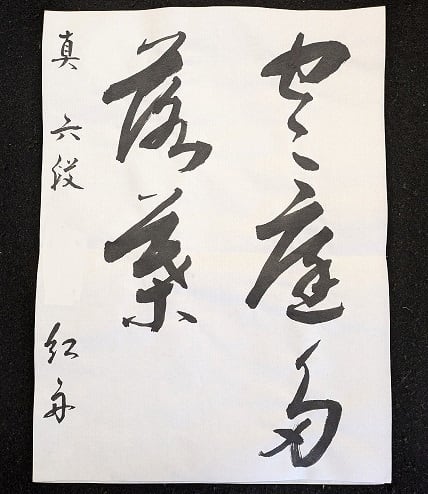 空庭多
落葉
真 六段 紅舟